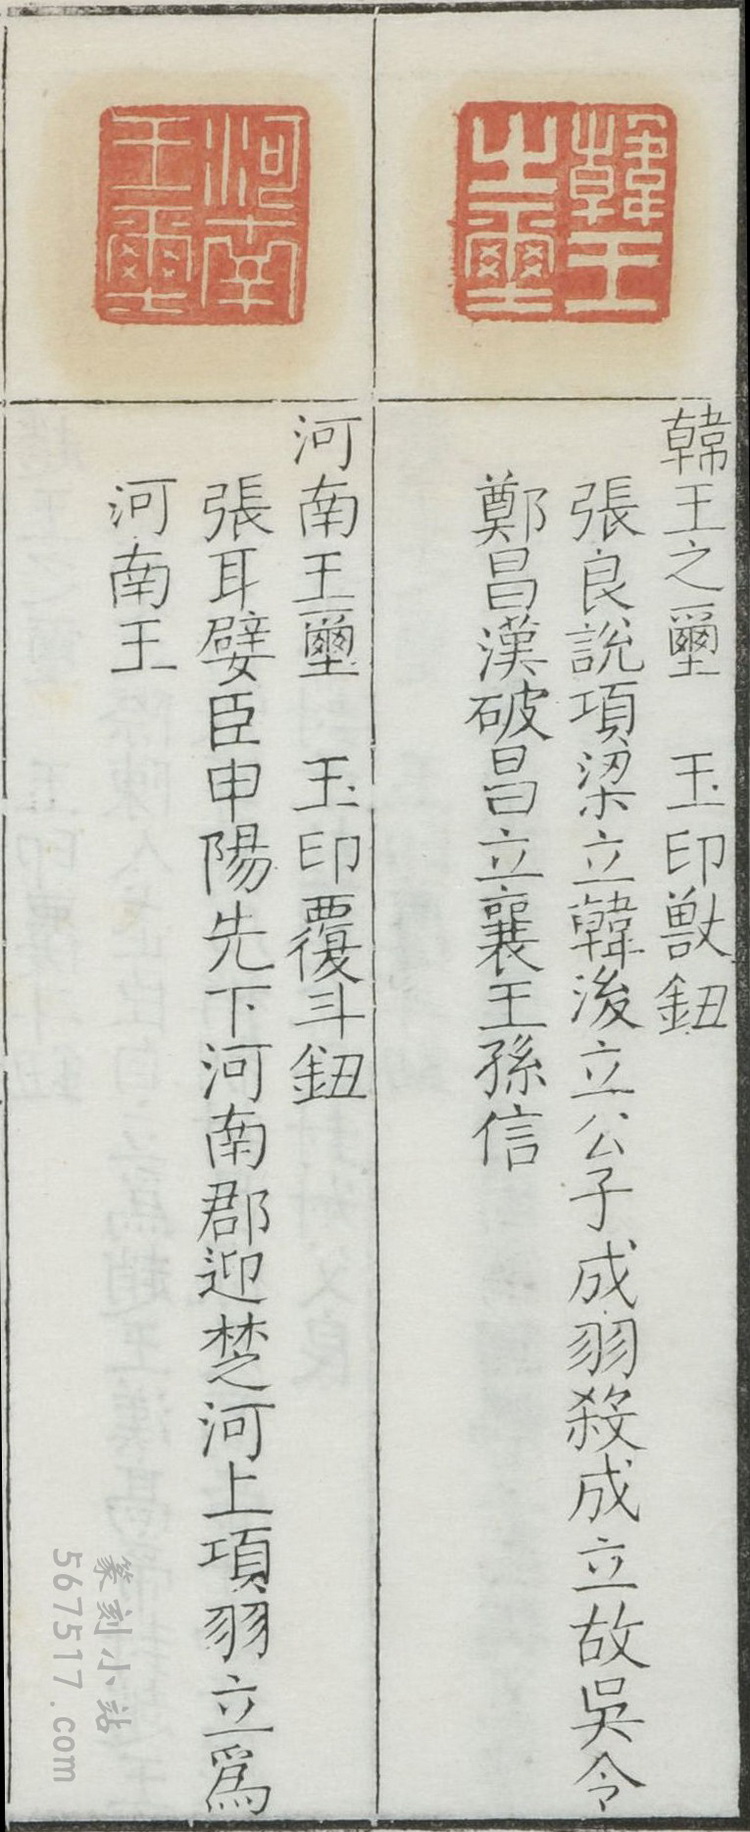 韓王之璽
韓王之璽　玉印獸鈕
張良說項梁立韓後立公子成羽殺成立故吳令
鄭昌漢破昌立襄王孫信
河南王璽
河南王璽　玉印覆斗鈕
張耳嬖臣申陽先下河南郡迎楚河上項羽立爲
河南王
篆刻小站
567517.com